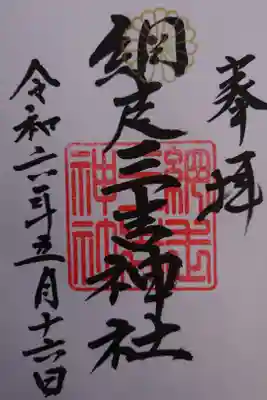 奉拝
網走三吉神社
網走三吉神社
令和六年五月十六日